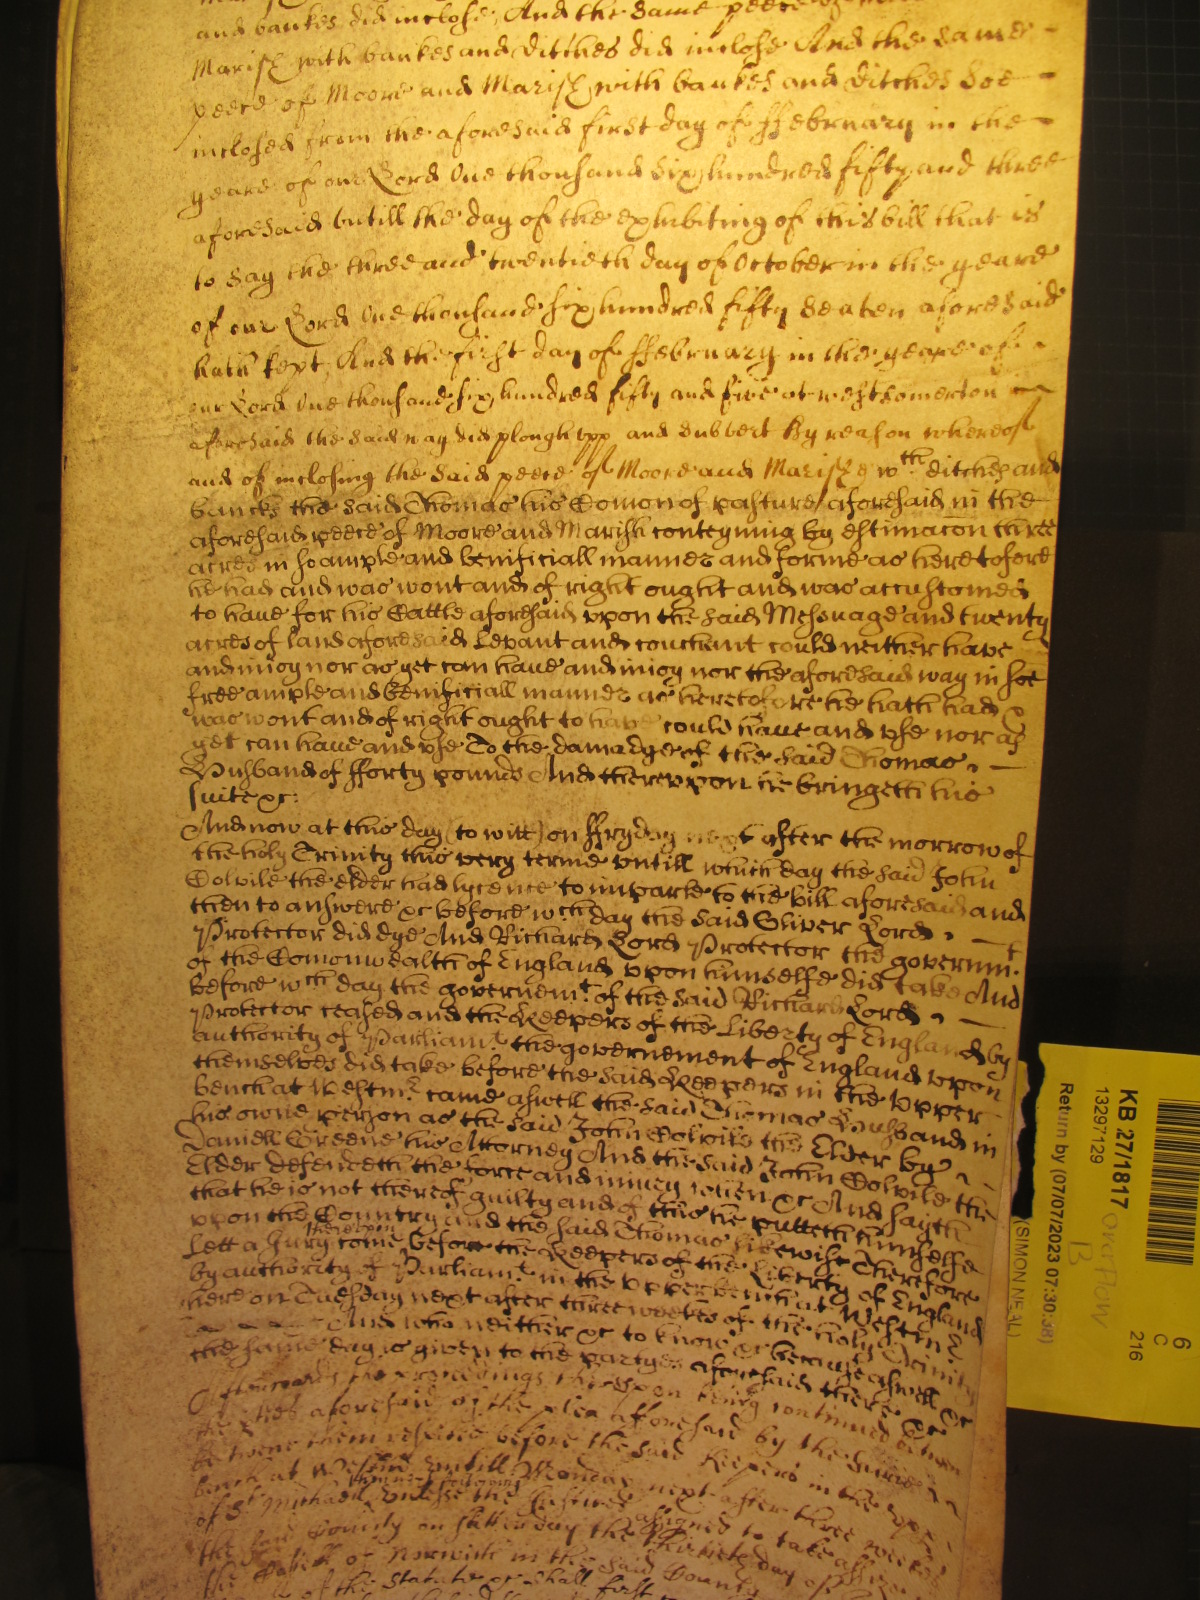 and bankes did inclose, And the same peece of
Marish with bankes and ditches did inclose And the same
peece of Moore and Marish with bankes and ditches soe
inclosed from the aforesaid first day of ffebruary in the
yeare of our Lord One thousand six hundred fifty and three
aforesaid untill the day of the exhibiting of this bill that is
to say the three and twentieth day of October in the yeare
of our Lord One thousand six hundred fifty seaven aforesaid
hath kept, And the first day of ffebruary in the yeare of
our Lord One thousand six hundred fifty and five at westsomerton
aforesaid the said way did plough upp and subvert By reason whereof
and of inclosing the said peece of Moore and Marishe wth ditches and
bancks the said Thomas his Comon of pasture aforesaid in the
aforesaid peece of Moore and Marish conteyning by estimacon three
acres in so ample and benificiall manner and forme as heretofore
he had and was wont and of right ought and was accustomed
to have for his Cattle aforesaid upon the said Messuage and twenty
acres of land aforesaid Levant and couchant could neither have
and injoy nor as yet can have and injoy nor the aforesaid way in soe
free ample and benificiall manner as heretofore he hath had
was wont and of right ought to have could have and use nor as
yet can have and use To the damadge of the said Thomas
Husband of fforty pounds And thereupon he bringeth his
suite &c:
And now at this day (to witt) on ffryday next after the morrow of
the holy Trinity this very terme untill which day the said John
Colvile the elder had lycence to imparle to the bill aforesaid and
then to answere &c before wch day the said Oliver Lord
Protector did dye And Richard Lord Protector the governmt
of the Comonwealth of England upon himselfe did take And
before wch day the governemt of the said Richard Lord
Protector ceased and the Keepers of the Liberty of England by
authority of Parliamt the governement of England upon
themselves did take before the said Keepers in the upper
bench at Westmr came aswell the said Thomas Husband in
his owne person as the said John Colvile the Elder by
Daniell Greene his Attorney And the said John Colvile the
Elder defendeth the force and injury when &c And sayth
that he is not thereof guilty and of this he putteth himselfe
upon the Country and the said Thomas likewise Therefore
Lett a Jury thereupon come before the Keepers of the Liberty of England
by authority of Parliamt in the upper bench at Westmr
here on Tuesday next after three weekes of the holy Trinity
And who neither &c to know &c because aswell &c
the same day is given to the partyes aforesaid there &c
Afterwards the proceedings thereupon being continued betweene
the partyes aforesaid of the plea aforesaid by the Jury
betweene them respited before the said Keepers in the upper
bench at Westmr untill Monday next after three weekes
of St Michaell then next following unlesse the Justices assigned to take assizes
the said County on Satterday the thirtieth day of
the Castle of Norwich in the said County
of the Statute &c shall first
KB 27/1817
13297129
Return by (07/07/2023 07:30:38)
(SIMON NEAL)
overflow
B
6
C
216